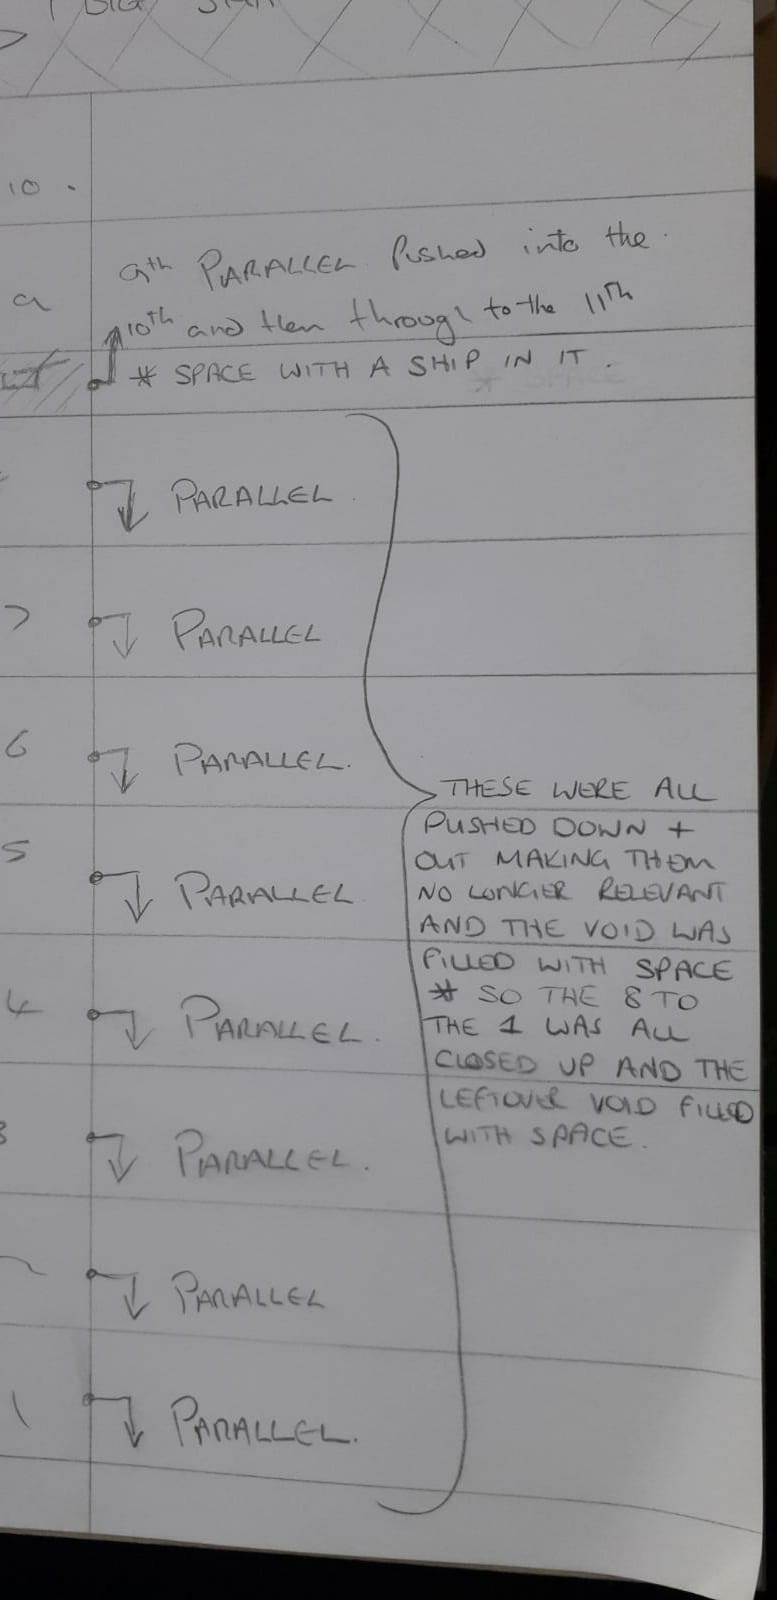 BIG
10 .
9 9th PARALLEL Pushed into the
10th and then through to the 11th
* SPACE WITH A SHIP IN IT .
PARALLEL
7 PARALLEL
6 PARALLEL.
THESE WERE ALL
PUSHED DOWN +
OUT MAKING THEM
5 PARALLEL
NO LONGER RELEVANT
AND THE VOID WAS
FILLED WITH SPACE
* SO THE 8 TO
4 PARALLEL.
THE 1 WAS ALL
CLOSED UP AND THE
LEFTOVER VOID FILLED
WITH SPACE.
3 PARALLEL.
PARALLEL
1 PARALLEL.